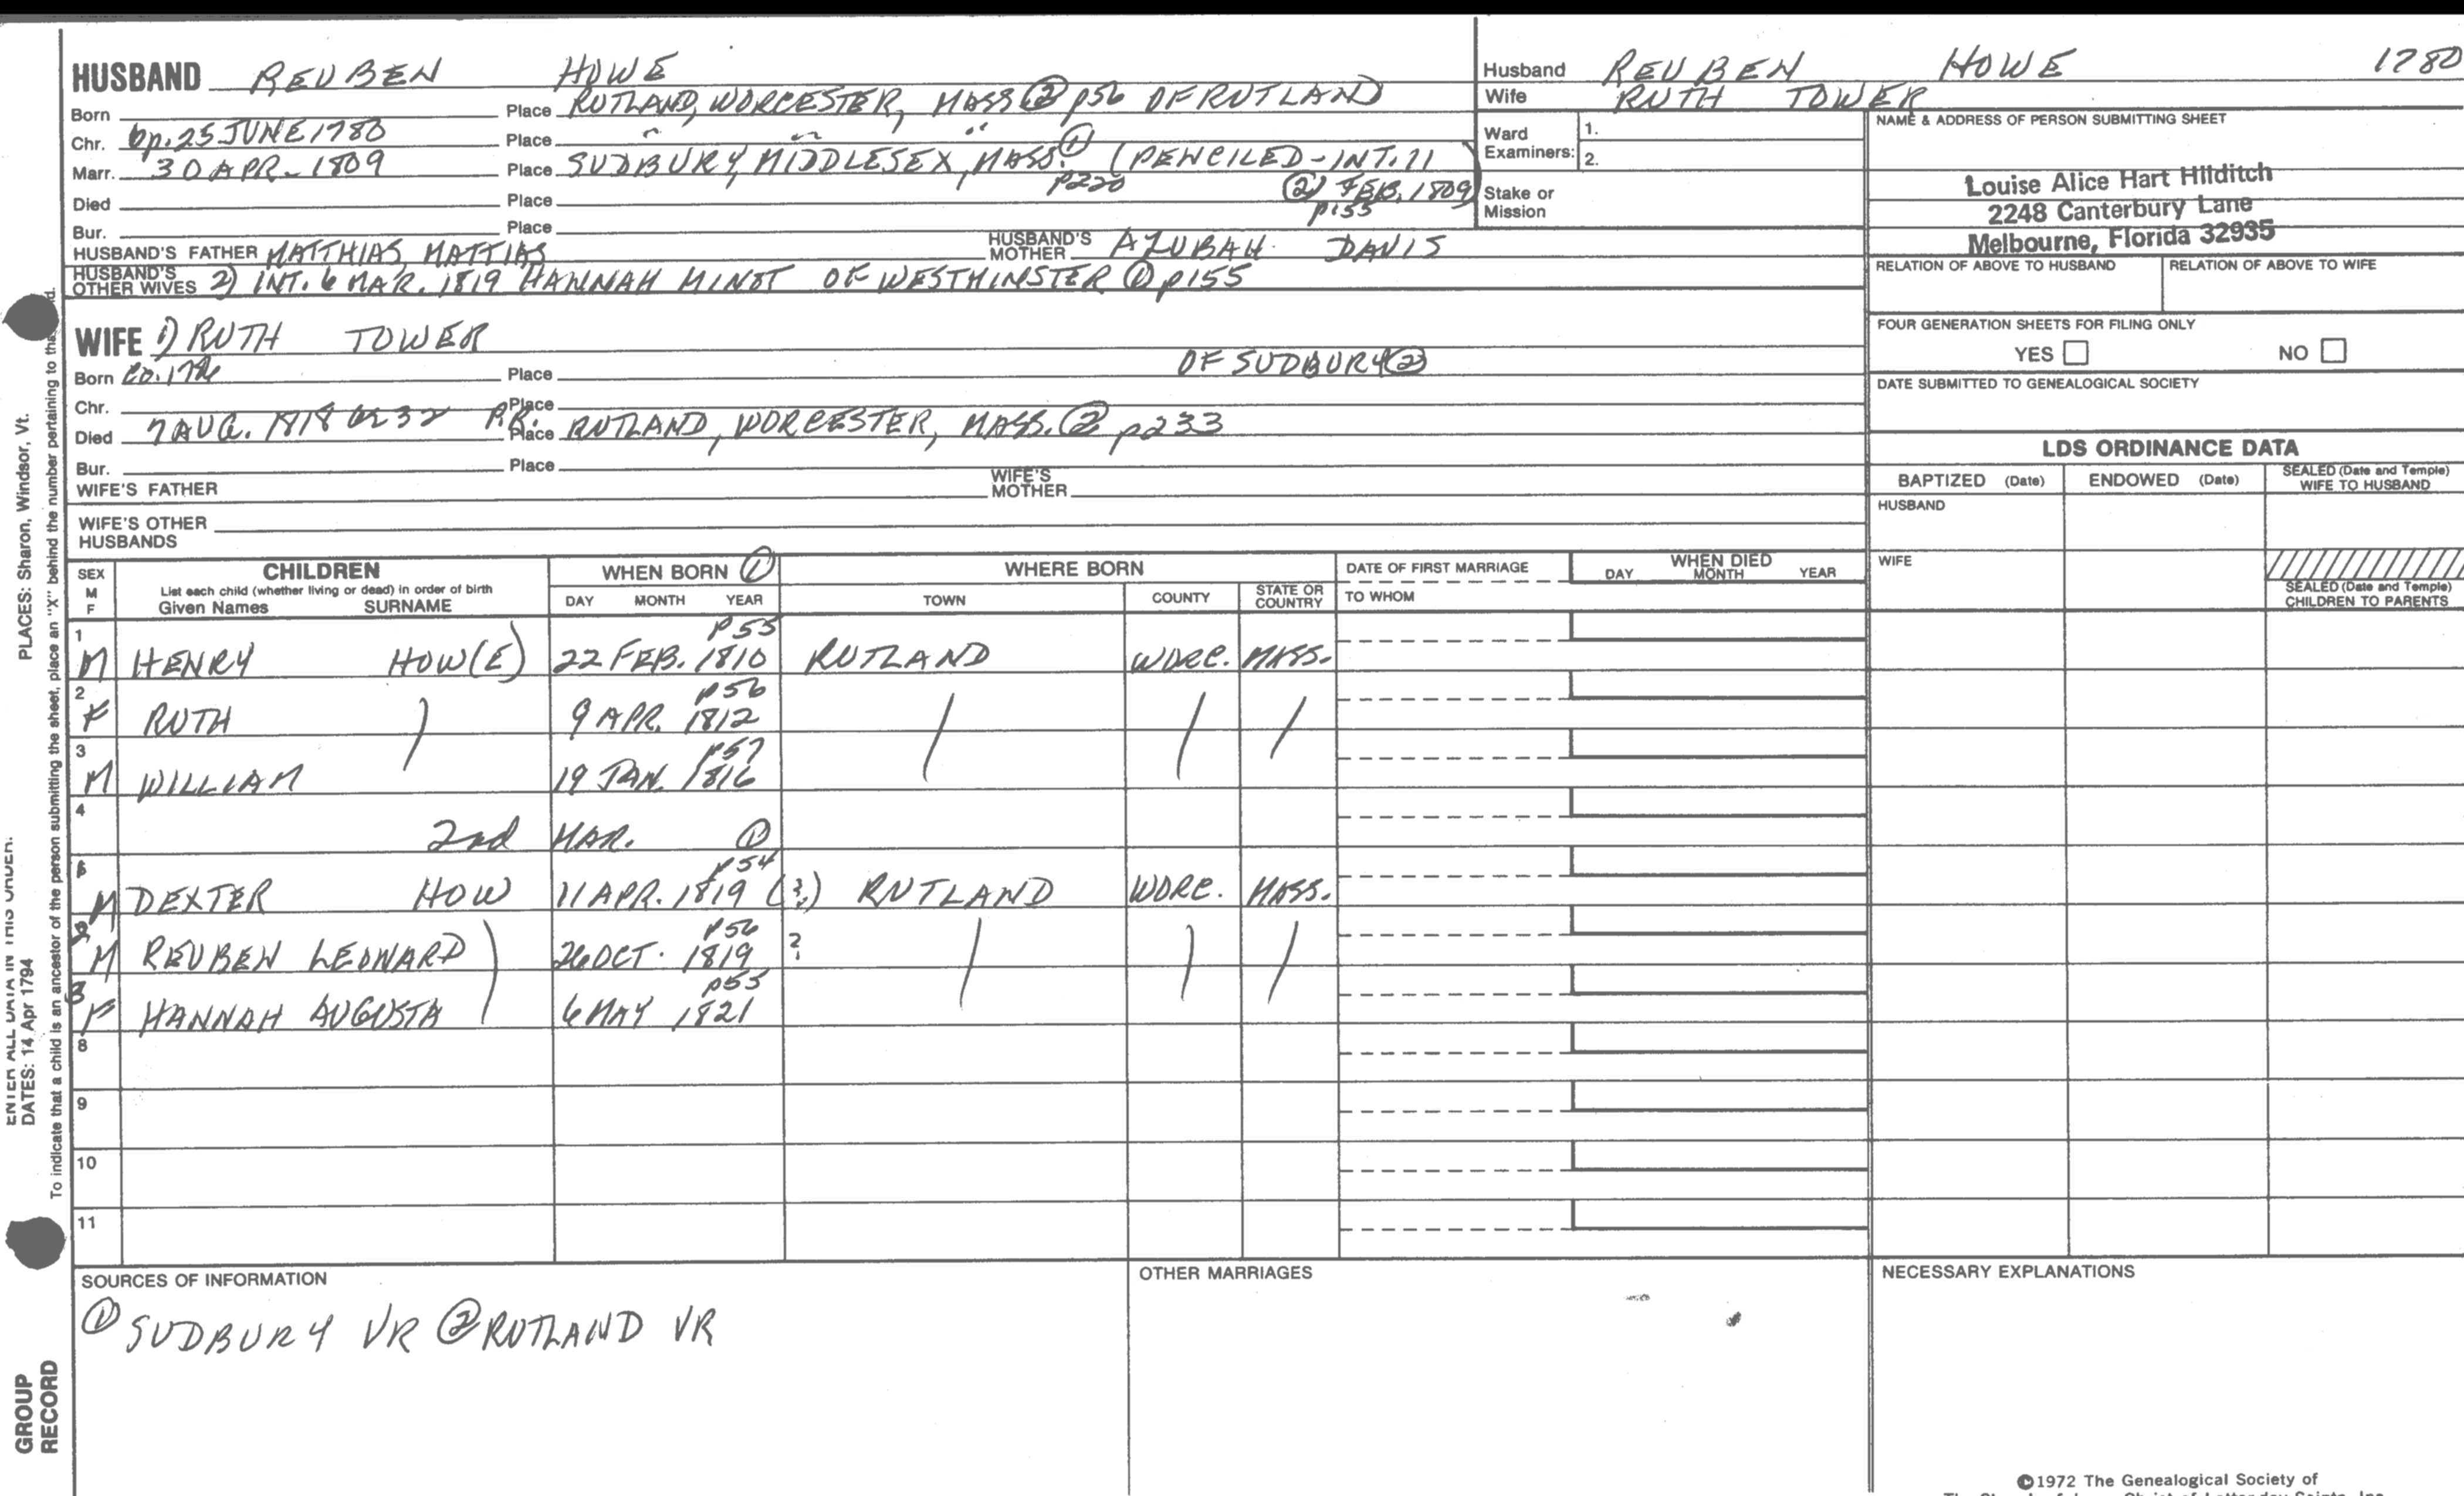 HUSBAND REUBEN HOWE
Born Place RUTLAND, WORCESTER, MASS ② p56 OF RUTLAND
Chr. bp. 25 JUNE 1780 Place " " " ①
Marr. 30 APR. 1809 Place SUDBURY, MIDDLESEX, MASS. (PENCILED - INT. 11
p220 ② FEB. 1809)
p155
Died Place
Bur. Place
HUSBAND'S FATHER MATTHIAS, MATTIAS HUSBAND'S MOTHER AZUBAH DAVIS
HUSBAND'S OTHER WIVES 2) INT. 6 MAR. 1819 HANNAH MINOT OF WESTMINSTER ① p155
WIFE 1) RUTH TOWER
OF SUDBURY ②
Born Place
Chr. Place
Died 7 AUG. 1818 Place RUTLAND, WORCESTER, MASS. ② p233
Bur. Place
WIFE'S FATHER WIFE'S MOTHER
WIFE'S OTHER HUSBANDS
Husband REUBEN HOWE 1780
Wife RUTH TOWER
Ward Examiners: 1.
2.
Stake or Mission
NAME & ADDRESS OF PERSON SUBMITTING SHEET
Louise Alice Hart Hilditch
2248 Canterbury Lane
Melbourne, Florida 32935
RELATION OF ABOVE TO HUSBAND RELATION OF ABOVE TO WIFE
FOUR GENERATION SHEETS FOR FILING ONLY
YES NO
DATE SUBMITTED TO GENEALOGICAL SOCIETY
LDS ORDINANCE DATA
BAPTIZED (Date) ENDOWED (Date) SEALED (Date and Temple) WIFE TO HUSBAND
HUSBAND
WIFE
SEALED (Date and Temple) CHILDREN TO PARENTS
SEX M F CHILDREN WHEN BORN ① WHERE BORN DATE OF FIRST MARRIAGE WHEN DIED
List each child (whether living or dead) in order of birth
Given Names SURNAME DAY MONTH YEAR TOWN COUNTY STATE OR COUNTRY TO WHOM DAY MONTH YEAR
1 p55
M HENRY HOW(E) 22 FEB. 1810 RUTLAND WORC. MASS.
2 p56
F RUTH 9 APR. 1812
3 p57
M WILLIAM 19 JAN. 1816
4
2nd MAR. ①
p54
M DEXTER HOW 11 APR. 1819 (?) RUTLAND WORC. MASS.
2 p56
M REUBEN LEONARD 26 OCT. 1819 ?
3 p55
F HANNAH AUGUSTA 6 MAY 1821
8
9
10
11
SOURCES OF INFORMATION
① SUDBURY VR ② RUTLAND VR
OTHER MARRIAGES
NECESSARY EXPLANATIONS
©1972 The Genealogical Society of
PLACES: Sharon, Windsor, Vt.
ENTER ALL DATA IN THIS ORDER.
DATES: 14 Apr 1794
To indicate that a child is an ancestor of the person submitting the sheet, place an "X" behind the number pertaining to
GROUP
RECORD